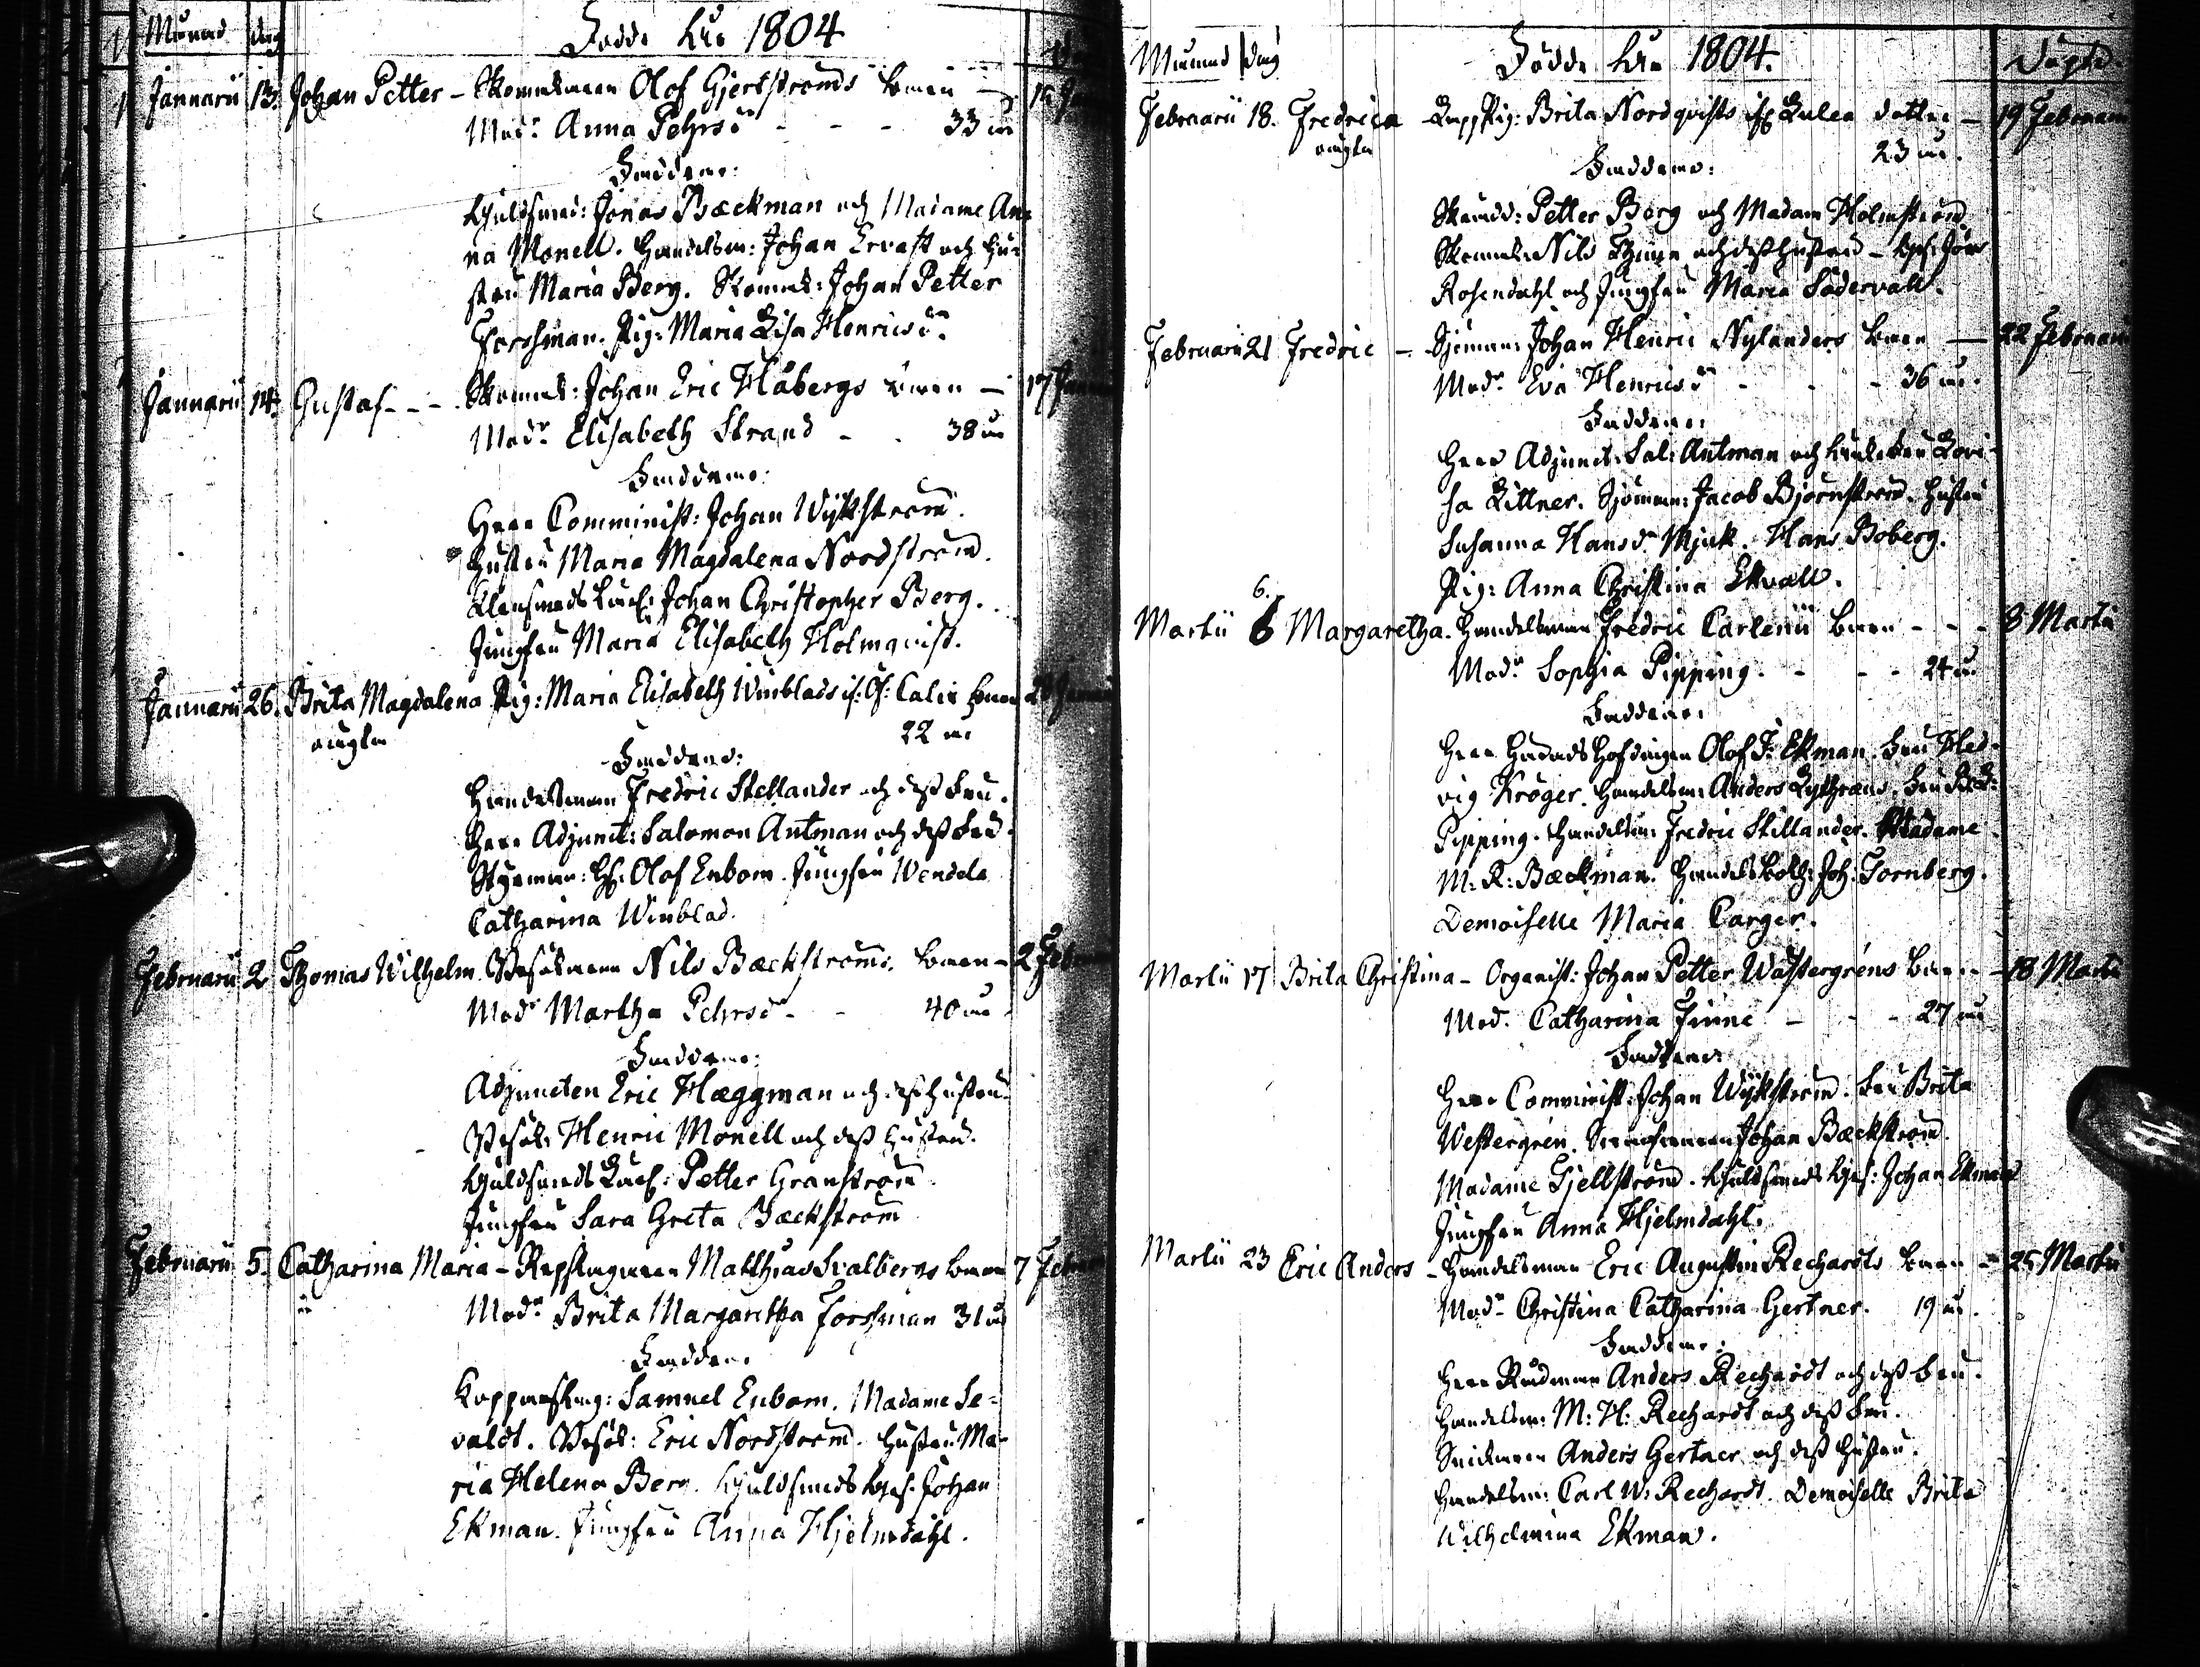 Månad dag Födde År 1804
Januarii 13. Johan Petter - Skomakaren Olof Gjerdströms barn
Modr Anna Pehrsdr - - - 33 år
Faddrar:
Guldsmed: Jonas Bæckman och Madame An=
na Monell. Handelsm: Johan Ervast och hu=
stru Maria Berg. Skomak: Johan Petter
Forssman. Pig: Maria Lisa Henricsdr.
Januarii 14. Gustaf - - - Skomak: Johan Eric Håbergs barn - 17 Janu
Modr Elisabeth Strand - - 38 år
Faddrarne:
Herr Comminist: Johan Wijkström.
Hustru Maria Magdalena Nordström.
Johan Christopher Berg.
Jungfru Maria Elisabeth Holmqvist.
Januarii 26. Brita Magdalena Pig: Maria Elisabeth Winblads
oägta 22 år
Faddrar:
Handelsman Fredric Stellander och dess Fru.
Herr Adjunct: Salomon Antman och dess Fru.
Styrman: Olof Enbom. Jungfru Wendela
Catharina Winblad.
Februarii 2 Thomas Wilhelm. Nils Bæckströms barn - 2 Febru
Modr Martha Pehrsdr - - 40 år
Faddrar:
Adjuncten Eric Hæggman och dess hustru.
Henric Monell och dess Hustru.
Guldsmeds Petter Granström.
Jungfru Sara Greta Bæckström
Februarii 5. Catharina Maria - Matthias Svalbergs barn 7 Febru
Modr Brita Margaretha Forssman 31 år
Faddrar:
Kopparslag: Samuel Enbom. Madame Se=
valdt. Eric Nordström. Hustru Ma=
ria Helena Berg. Guldsmeds Ges: Johan
Ekman. Jungfru Anna Hjelmdahl.
Månad dag Födde År 1804. Döpte
Februarii 18. Fredrica - Brita Nordqvists dotter - 19 Februarii
oägta 23 år.
Faddrarne:
Petter Berg och Madam Holmström
Skomak: Nils och dess hustru -
Rosendahl och Jungfru Maria Södervall.
Februarii 21 Fredric - Sjöman: Johan Henric Nylanders barn - 22 Februarii
Modr Eva Henricsdr - - - 36 år.
Faddrar:
Herr Adjunct: Sal: Antman och Lovi=
sa Littner. Sjöman: Jacob Björnström. Hustru
Susanna Hansdr Mjuk. Hans Boberg.
Pig: Anna Christina Ekvall.
6.
Martii 6 Margaretha. Handelsman Fredric Carlenii barn - - - 8 Martii
Modr Sophia Pipping. - - - 24 år
Faddrar:
Herr Häradshöfdingen Olof J: Ekman. Fru Hed=
vig Kröger. Handelsm: Anders Lythræus. Fru
Pipping. Handelsm: Fredric Stillander. Madame
M: R: Bæckman. Handelsbokh: Joh: Tornberg.
Demoiselle Maria Carger.
Martii 17 Brita Christina - Organist: Johan Petter Wästergréns barn - 18 Martii
Mod. Catharina Finne - - - 27 år
Faddrar:
Herr Comminist: Johan Wijkström. Fru Brita
Westergren. Johan Bæckström.
Madame Gjellström. Guldsmeds Ges: Johan Ekman
Jungfru Anna Hjelmdahl.
Martii 23 Eric Anders - Handelsman Eric Augustin Rechardts barn - 25 Martii
Modr Christina Catharina Gertner. 19 år.
Faddrar:
Herr Rådman Anders Rechardt och dess Fru.
Handelsm: M: H: Rechardt och dess Fru.
Anders Gertner och dess Hustru.
Handelsm: Carl W: Rechardt. Demoiselle Brita
Wilhelmina Ekman.